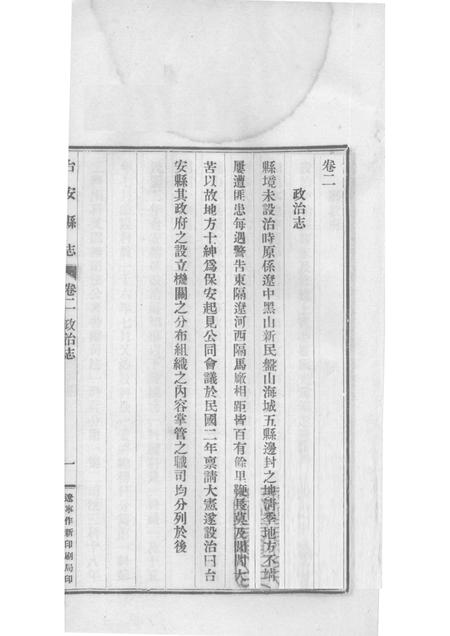 卷二
政治志
縣境未設治時原係遼中黑山新民盤山海城五縣邊封之地清季地方不靖
屢遭匪患每遇警告東隔遼河西隔馬廠相距皆百有餘里鞭長莫及閭閻大
苦以故地方士紳爲保安起見公同會議於民國二年稟請大憲遂設治曰台
安縣其政府之設立機關之分布組織之內容掌管之職司均分列於後
台安縣志 卷二 政治志 一 遼寧作新印刷局印